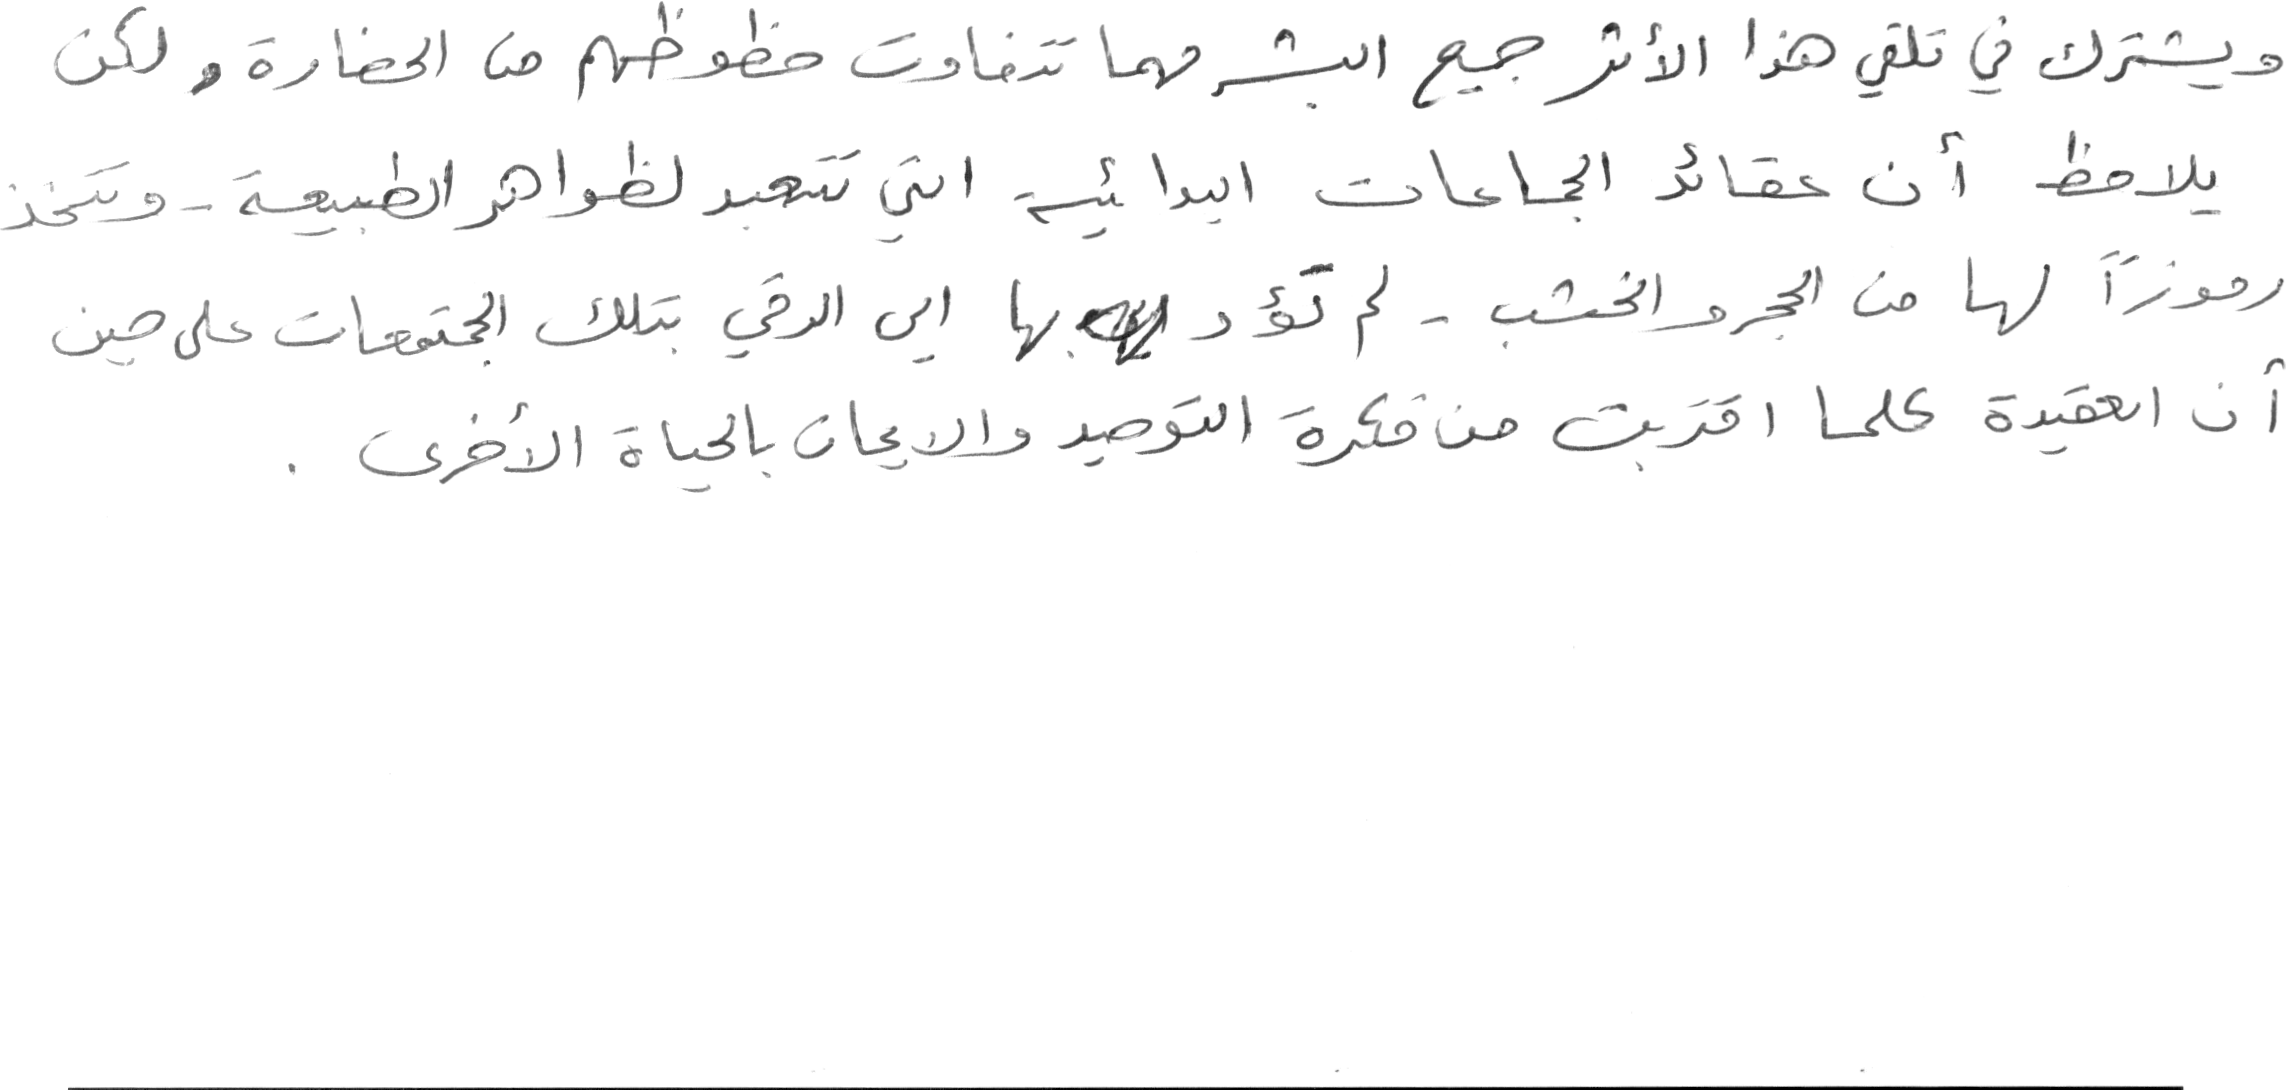 ويشترك في تلقي هذا الأثر جميع البشر مهما تتفاوت حظوظهم من الحضارة، ولكن
يلاحظ أن عقائد الجماعات البدائية التي تتعبد لظواهر الطبيعة - وتتخذ
رموزاً لها من الحجر والخشب - لم تؤد بها إلى الرقي بتلك المجتمعات على حين
أن العقيدة كلما اقتربت من فكرة التوحيد والايمان بالحياة الأخرى .